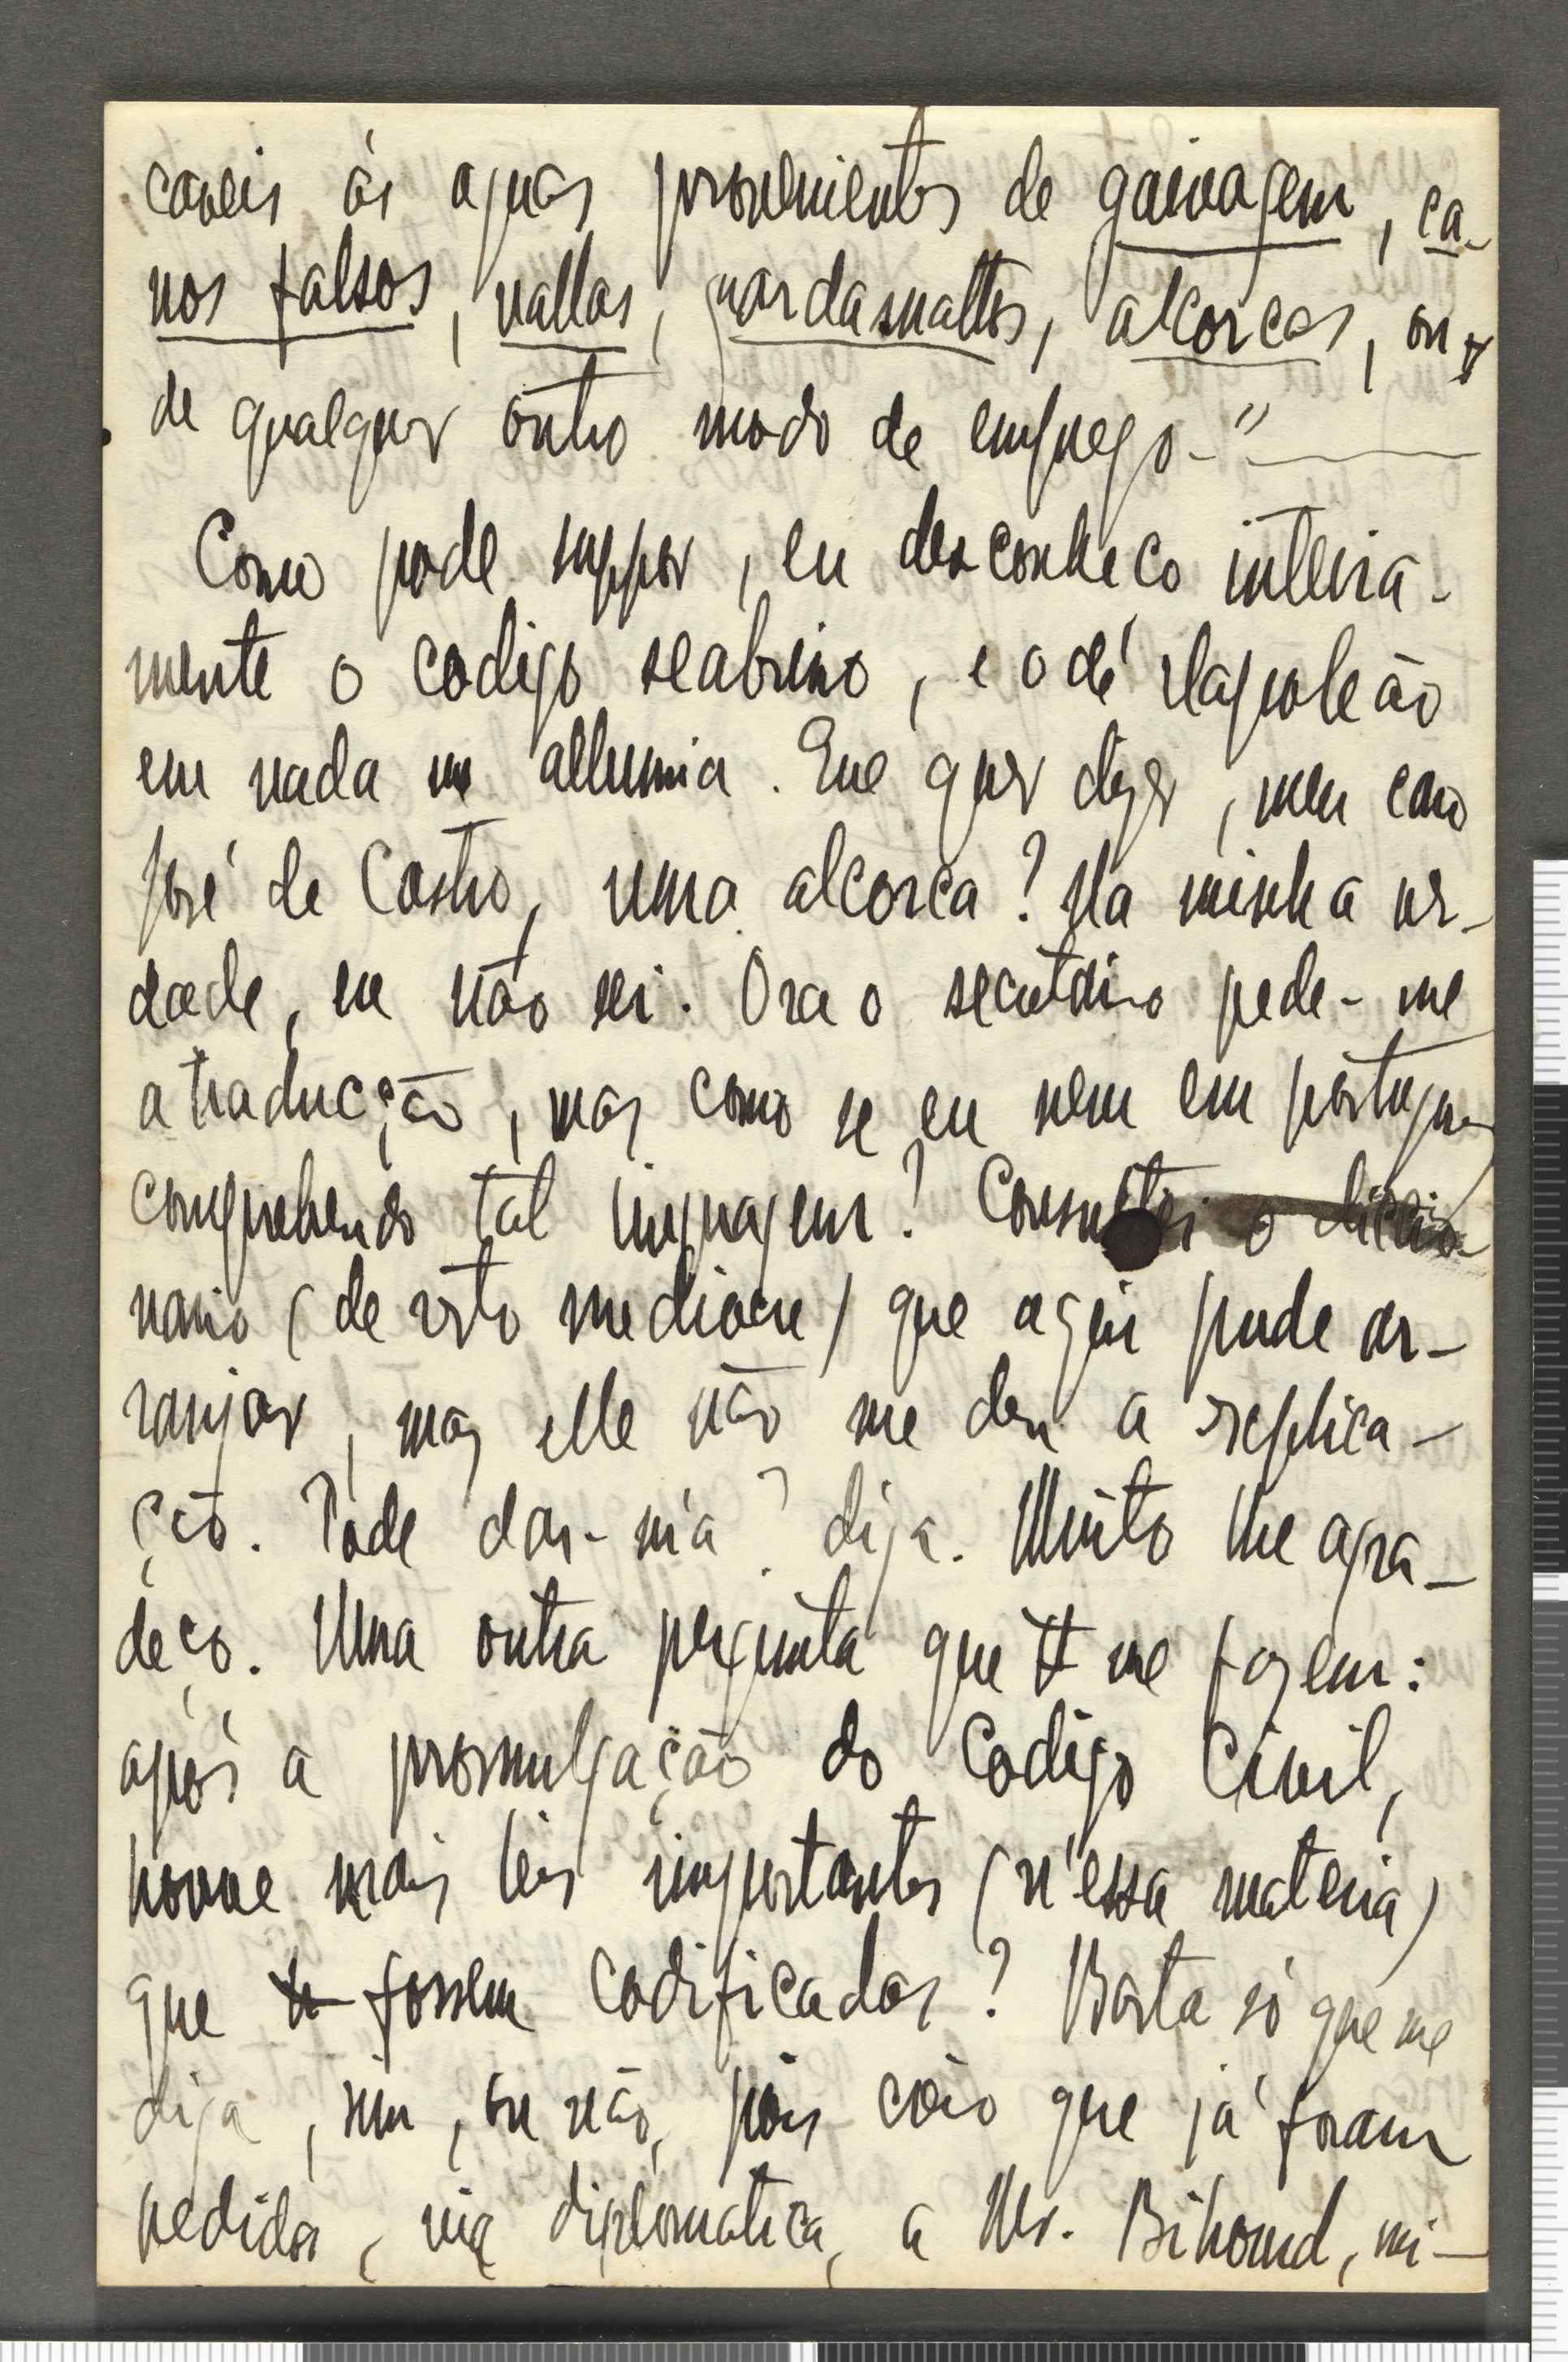 caveis ás aguas provenientes de gaivagem, ca-
nos falsos, vallas, guardasmattos, alcorcas, ou
de qualquer outro modo de emprego."
Como pode suppor, eu desconheco inteira-
mente o codigo seabrino, e o de Napoleão
em nada me allumia. Que quer dizer, meu caro
José de Castro, uma alcorca? Na minha ver-
dade, eu não sei. Ora o pede-me
a traducção, mas como se eu nem em portuguez
comprehendo tal linguagem? Consultei o diccio-
nario (de resto mediocre) que aqui pude ar-
ranjar, mas elle não me deu a explica-
ção. Póde dar-m'a? diga. Muito lhe agra-
deço. Uma outra pergunta que me fazem:
após a promulgação do Codigo Civil,
houve mais leis importantes (n'essa materia)
que fossem codificadas? Basta só que me
diga, sim, ou não, pois creio que já foram
pedidas, via diplomatica, a Mr. Bihourd, mi-